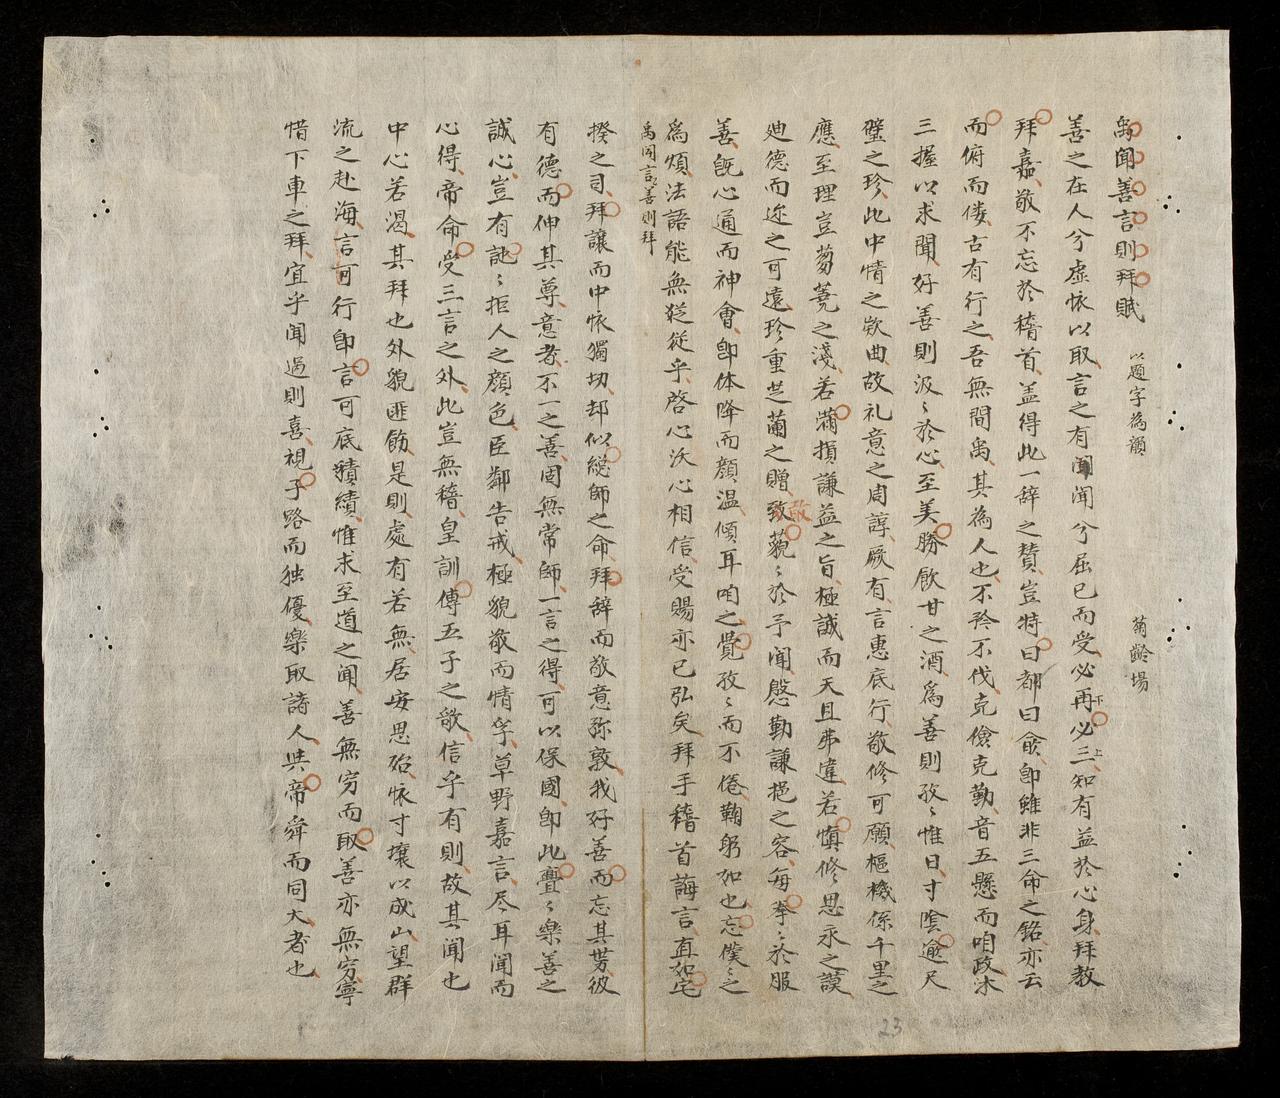 禹聞善言則拜賦 以題字為韻 菊齡場
善之在人兮虛懷以取言之有聞聞兮屈已而受必再必三知有益於心身拜教
拜嘉敬不忘於稽首盖得此一辞之賛豈特曰都曰兪即雖非三命之銘亦云
而俯而僂古有行之吾無間禹其為人也不矜不伐克儉克勤音五懸而咱政沐
三握以求聞好善則汲〻於心至美勝飮甘之酒爲善則孜〻惟日寸陰逾尺
璧之珍此中情之欵曲故礼意之周諄厥有言惠底行敬修可願樞機係千里之
應至理豈蒭蕘之淺若滿損謙益之旨極誠而天且弗違若愼修思永之謨
廸德而迩之可遠珍重芝蘭之贈致敬藐〻於予聞慇勤謙挹之容每拳〻於服
善旣心通而神會卽体降而顔温傾耳咱之覺孜〻而不倦鞠躬如也忘僕〻之
爲煩法語能無從從乎啓心沃心相信受賜亦已弘矣拜手稽首誨言直如宅
禹聞善言則拜
揆之司拜讓而中懷獨切却似総師之命拜辞而敬意弥敦我好善而忘其势彼
有德而伸其尊意者不一之善固無常師一言之得可以保國卽此亹〻樂善之
誠心豈有訑〻拒人之顔色臣鄰告戒極貌敬而情孚草野嘉言尽耳聞而
心得帝命受三言之外此豈無稽皇訓傳五子之歌信乎有則故其聞也
中心若渴其拜也外貌匪飭是則處有若無居安思殆怀寸壤以成山望群
流之赴海言可行卽言可底績績惟求至道之聞善無穷而取善亦無穷寧
惜下車之拜宜乎聞過則喜視子路而独優樂取諸人與帝舜而同大者也
23